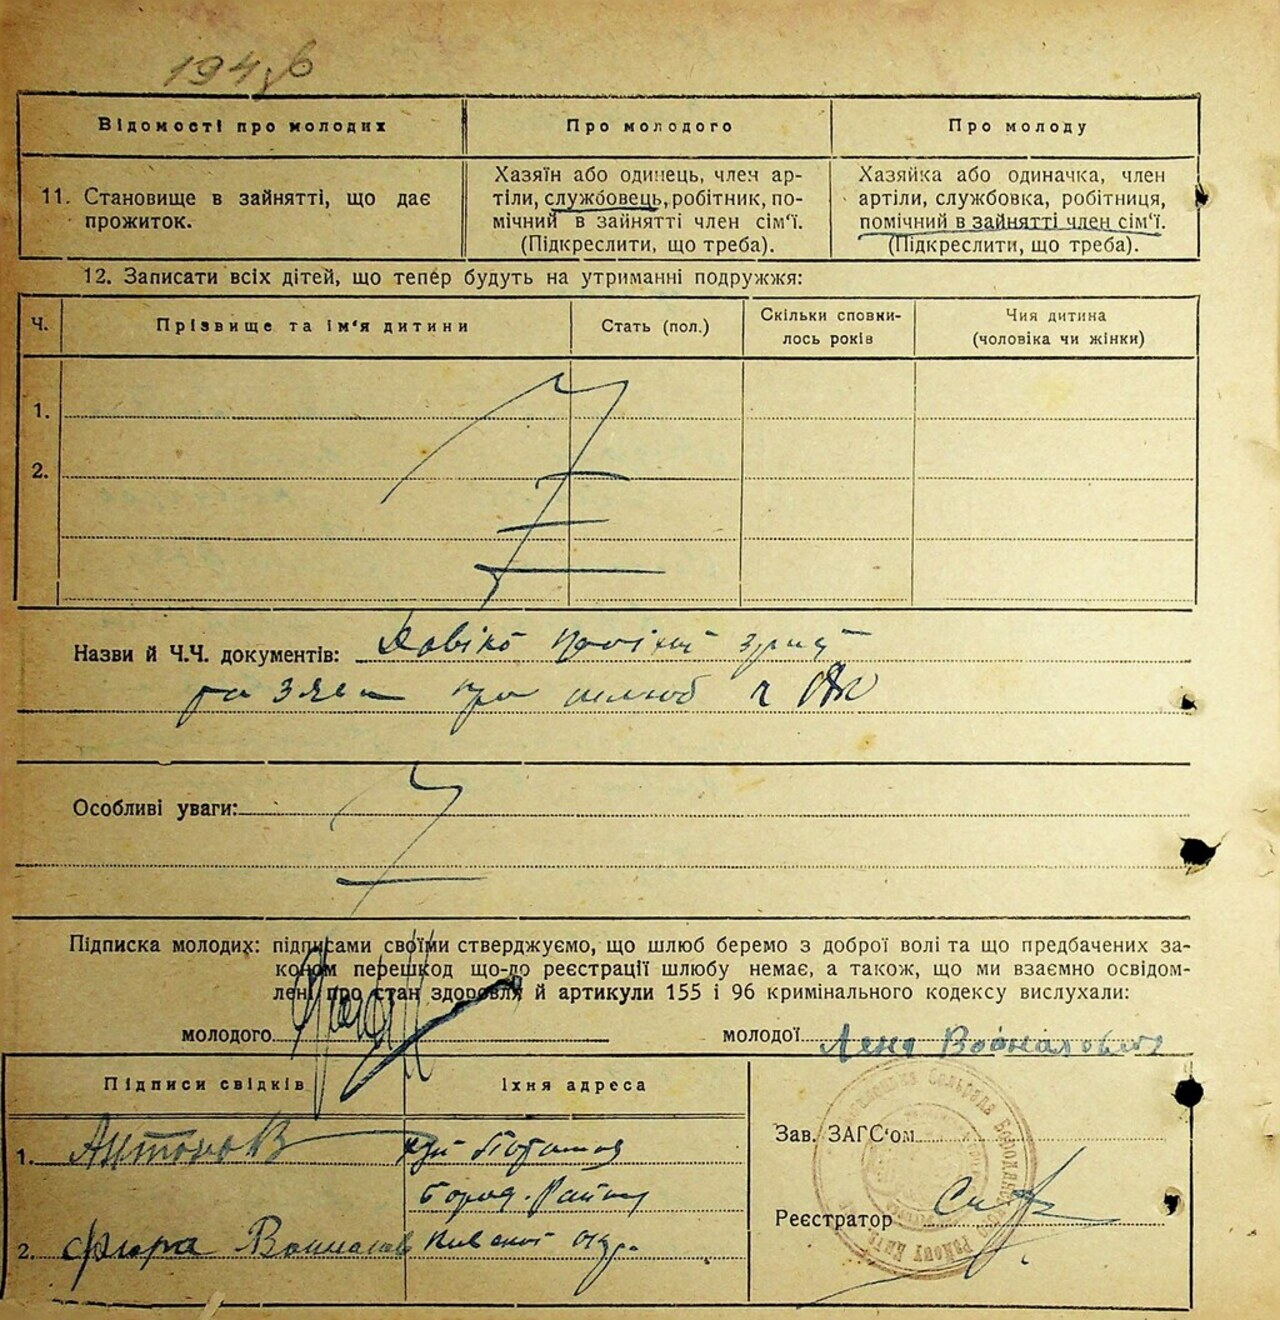 Відомості про молодих
Про молодого
Про молоду
11. Становище в зайнятті, що дає
прожиток.
Хазяїн або одинець, член ар-
тіли, службовець, робітник, по-
мічний в зайнятті член сім'ї.
(Підкреслити, що треба).
Хазяйка або одиначка, член
артіли, службовка, робітниця,
помічний в зайнятті член сім'ї.
(Підкреслити, що треба).
12. Записати всіх дітей, що тепер будуть на утриманні подружжя:
Ч.
Прізвище та ім'я дитини
Стать (пол.)
Скільки сповни-
лось років
Чия дитина
(чоловіка чи жінки)
1.
2.
Назви й Ч.Ч. документів:
та заява про шлюб
Особливі уваги:
Підписка молодих: підписами своїми стверджуємо, що шлюб беремо з доброї волі та що предбачених за-
коном перешкод що-до реєстрації шлюбу немає, а також, що ми взаємно освідом-
лені про стан здоровля й артикули 155 і 96 кримінального кодексу вислухали:
молодого
молодої Лена Войналович
Підписи свідків
Їхня адреса
1. Антонов
Бород. Району
2.
Київської окр.
Зав. ЗАГС'ом
Реєстратор